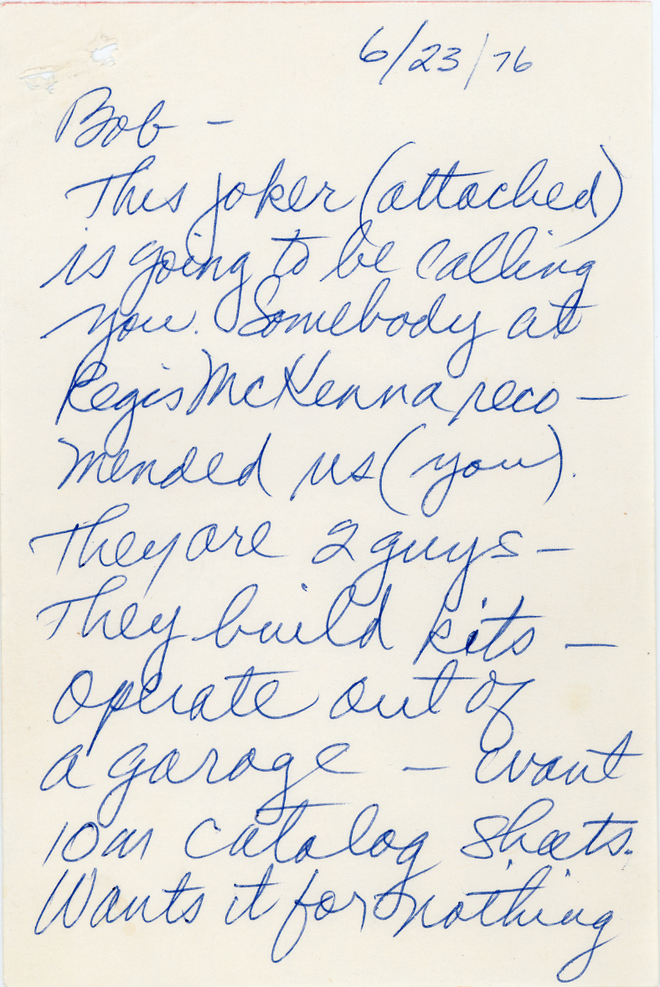 6/23/76
Bob –
This joker (attached)
is going to be calling
you. Somebody at
Regis McKenna reco –
mended us (you).
They are 2 guys –
They build kits –
Operate out of
a garage – want
10m catalog sheets.
Wants it for nothing